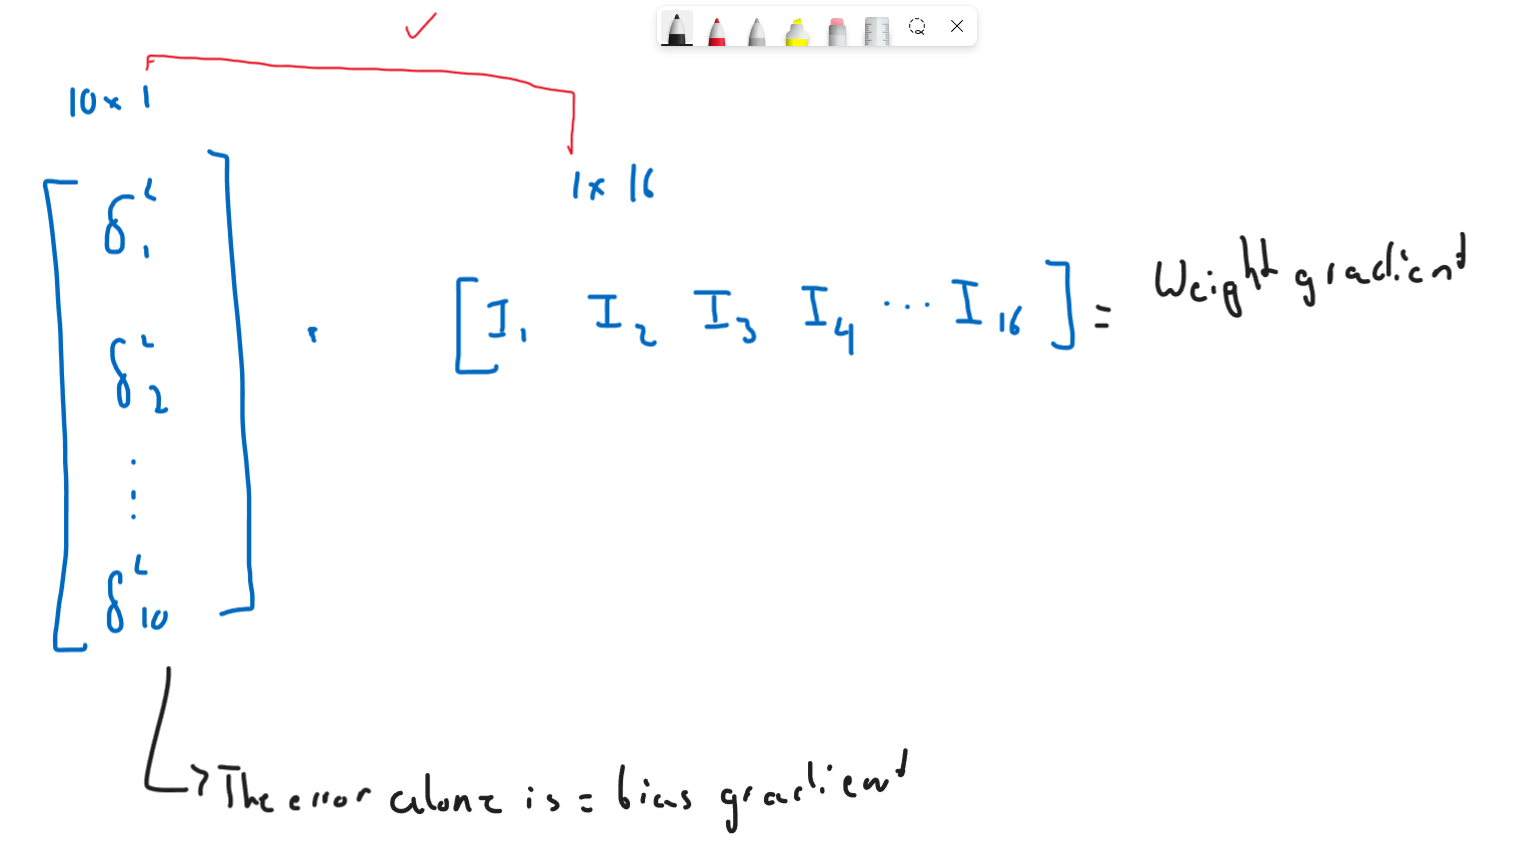 10 × 1
1 × 16
δ₁ᴸ
δ₂ᴸ
⋮
δ₁₀ᴸ
·
[I₁ I₂ I₃ I₄ ... I₁₆] = Weight gradient
The error alone is = bias gradient